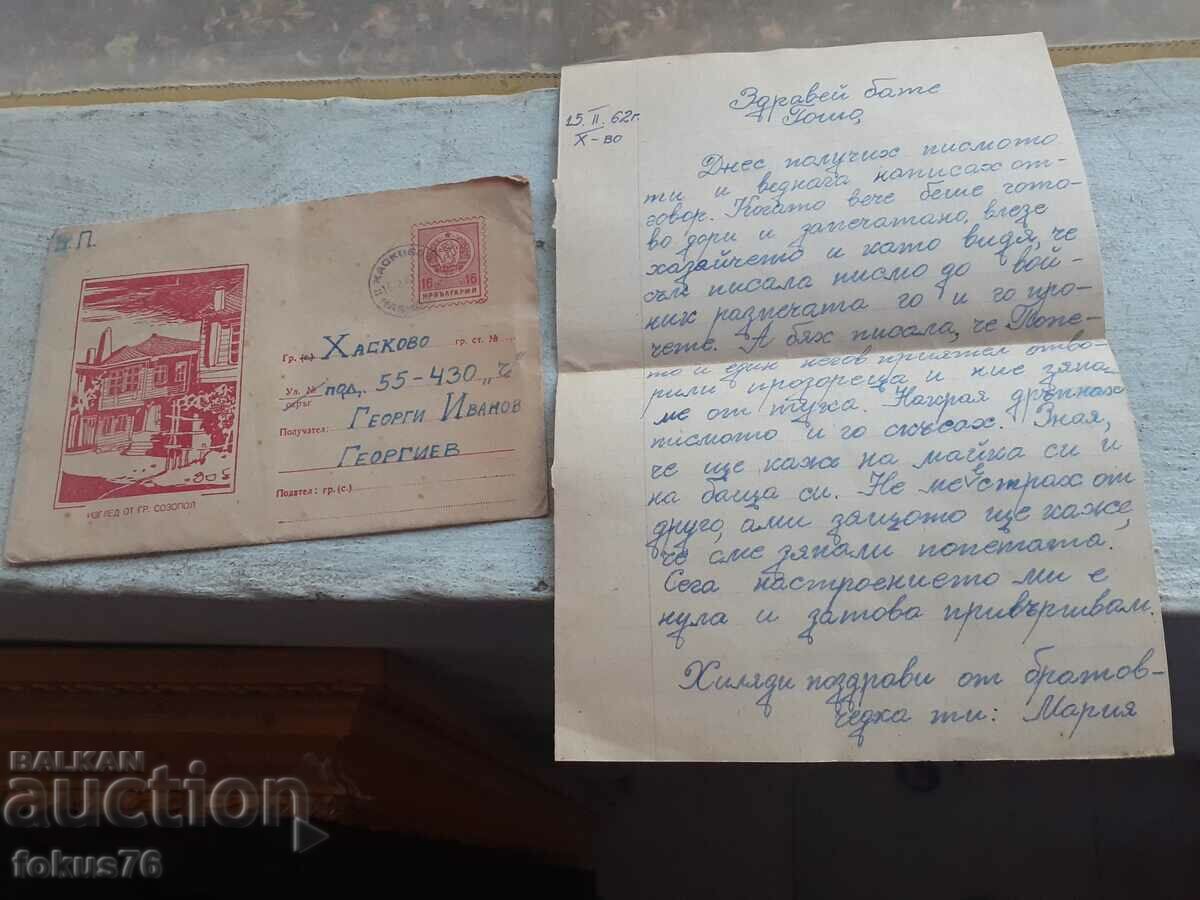 Н.П.
ХАСКОВО
16 16
НРБЪЛГАРИЯ
Гр. (с.) Хасково гр. ст. №
Ул. № под. 55-430 „Ч"
окръг
Получател: Георги Иванов
Георгиев
Подател: гр. (с.)
ИЗГЛЕД ОТ ГР. СОЗОПОЛ
Здравей бате
Гоша,
15.II.62г.
Х-во
Днес получих писмото
ти и веднага написах от-
говор. Когато вече беше гото-
во дори и запечатано, влезе
хазайчето и като видя, че
съм писала писмо до вой-
ник разпечата го и го про-
чете. А бях писала, че Попе-
то и един негов приятел отво-
рили прозореца и ние зяпа-
ме от тука. Накрая дръпнах
писмото и го скъсах. Зная,
че ще каже на майка си и
на баща си. Не ме е страх от
друго, ами защото ще каже,
че сме зяпали попетата.
Сега настроението ми е
нула и затова привършвам.
Хиляди поздрави от братов-
чедка ти: Мария
BALKAN
auction
fokus76